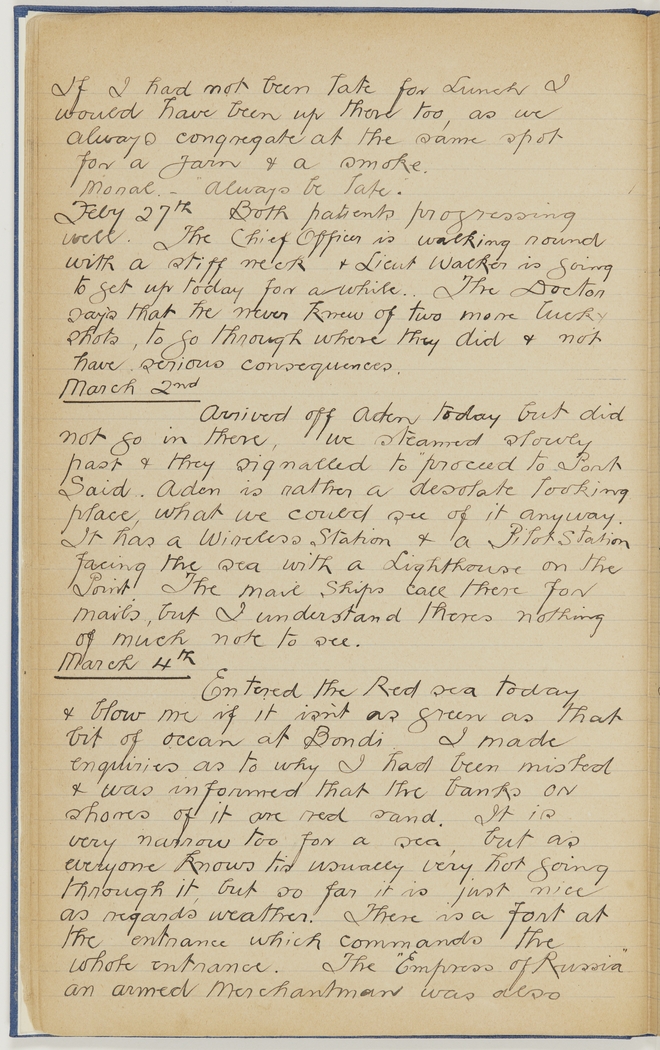 If I had not been late for Lunch I
would have been up there too, as we
always congregate at the same spot
for a yarn & a smoke.
Moral. - "Always be late".
Feby 27th Both patients progressing
well. The Chief Officer is walking round
with a stiff neck & Lieut Walker is going
to get up today for a while.. The Doctor
says that he never knew of two more lucky
shots, to go through where they did & not
have serious consequences.
March 2nd
Arrived off Aden today but did
not go in there, we steamed slowly
past & they signalled to "proceed to Port
Said. Aden is rather a desolate looking
place, what we could see of it anyway.
It has a Wireless Station & a Pilot Station
facing the sea with a Lighthouse on the
Point. The mail ships call there for
mails, but I understand theres nothing
of much note to see.
March 4th
Entered the Red sea today
& blow me if it isn't as green as that
bit of ocean at Bondi. I made
enquiries as to why I had been misled
& was informed that the banks or
shores of it are red sand. It is
very narrow too for a sea, but as
everyone knows tis usually very hot going
through it, but so far it is just nice
as regards weather. There is a Fort at
the entrance which commands the
whole entrance. The "Empress of Russia"
an armed Merchantman was also